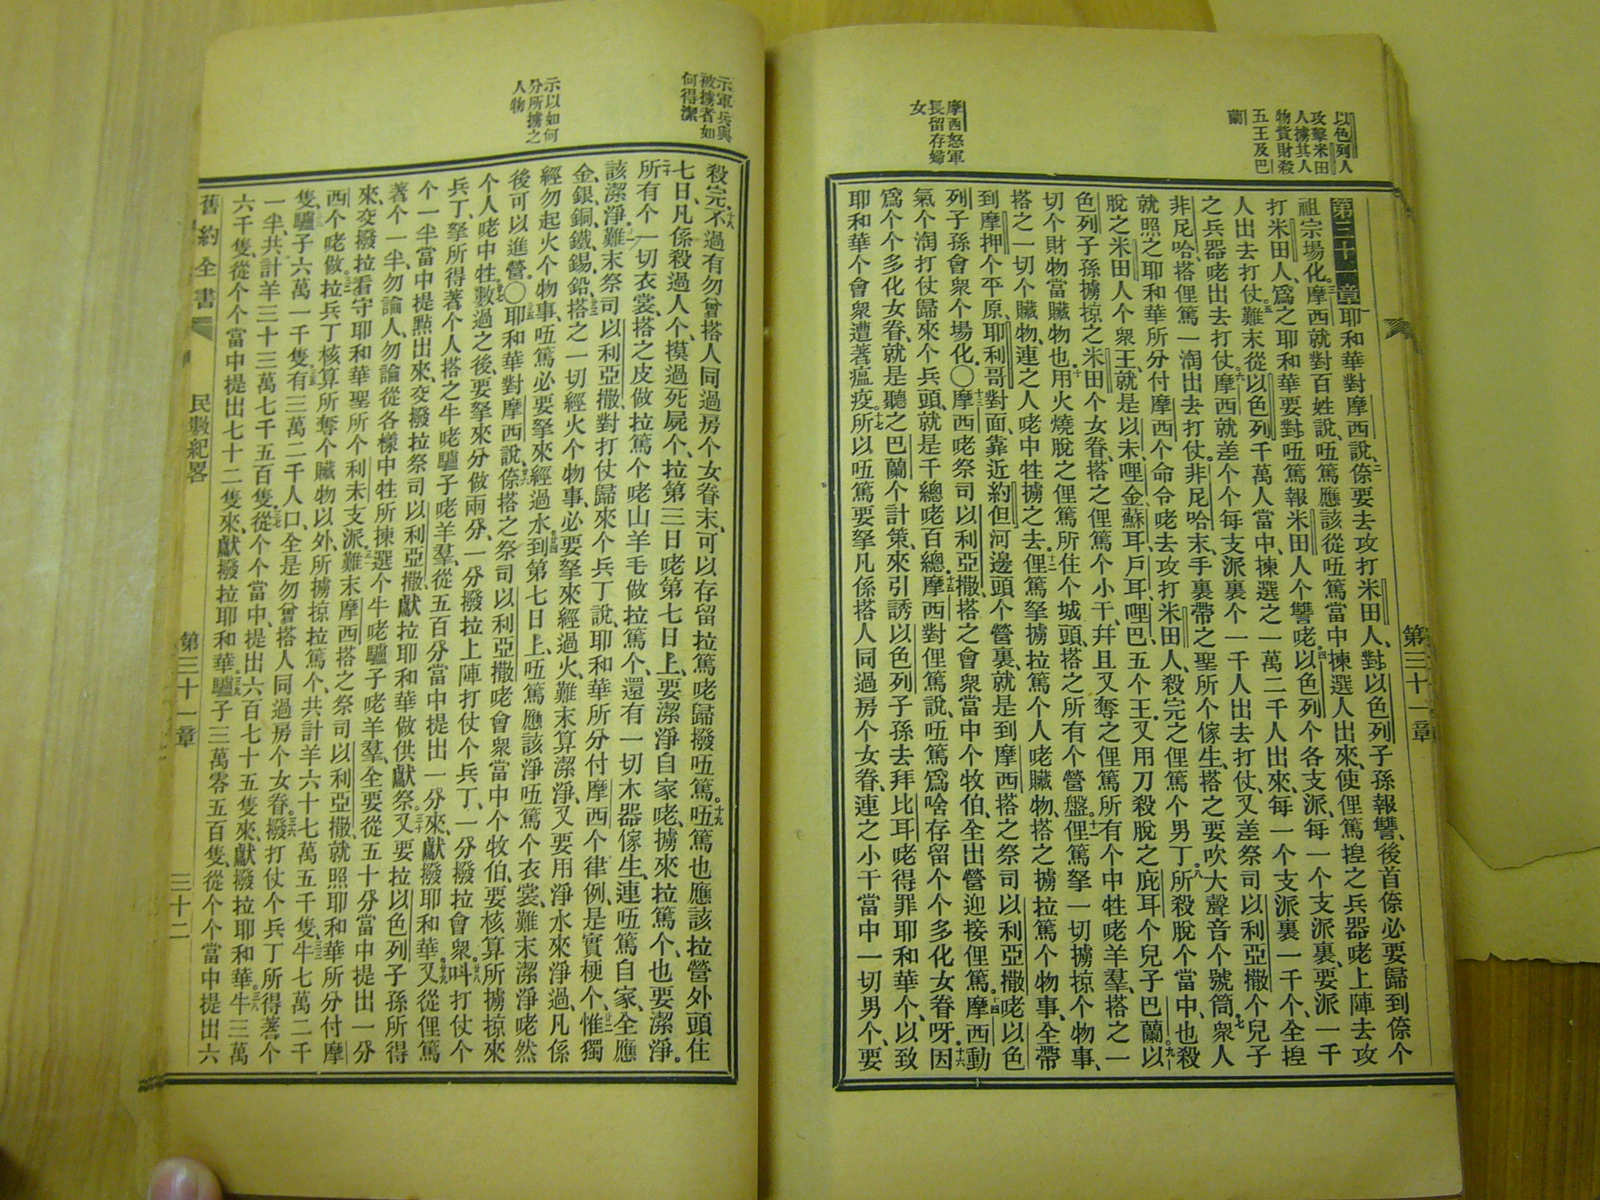 以色列人
攻擊米田
人擄其人
物貨財殺
五王及巴
蘭
摩西怒軍
長留存婦
女
第三十一章耶和華對摩西說、二倷要去攻打米田人、對以色列子孫報讐、後首倷必要歸到倷个
祖宗場化。三摩西就對百姓說、吼篤應該從吼篤當中揀選人出來、使俚篤揘之兵器咾上陣去攻
打米田人、爲之耶和華要對吼篤報米田人个讐咾。四以色列个各支派、每一个支派裏、要派一千
人出去打仗。難末從以色列千萬人當中、揀選之一萬二千人出來、每一个支派裏一千个、全揘
之兵器咾出去打仗。六摩西就差个个每支派裏个一千人出去打仗、又差祭司以利亞撒个兒子
非尼哈、搭俚篤一淘出去打仗、非尼哈末、手裏帶之聖所个傢生、搭之要吹大聲音个號筒。七衆人
就照之耶和華所分付摩西个命令咾去攻打米田人、殺完之俚篤个男丁。八所殺脫个當中、也殺
脫之米田人个衆王、就是以未、哩金、蘇耳、戸耳、哩巴、五个王、又用刀殺脫之庇耳个兒子巴蘭。九以
色列子孫擄掠之米田个女眷、搭之俚篤个小干、幷且又奪之俚篤所有个中牲咾羊羣、搭之一
切个財物當贓物也。十用火燒脫之俚篤所住个城頭、搭之所有个營盤。十一俚篤拏一切擄掠个物事、
搭之一切个贓物、連之人咾中牲擄之去。十二俚篤拏擄拉篤个人咾贓物、搭之擄拉篤个物事、全帶
到摩押个平原、耶利哥對面、靠近約但河邊頭个營裏、就是到摩西搭之祭司以利亞撒咾以色
列子孫會衆个場化。〇十三摩西咾祭司以利亞撒、搭之會衆當中个牧伯、全出營迎接俚篤。十四摩西動
氣个淘打仗歸來个兵頭、就是千總咾百總。十五摩西對俚篤說、吼篤爲啥存留个个多化女眷呀、十六因
爲个个多化女眷、就是聽之巴蘭个計策、來引誘以色列子孫去拜比耳咾得罪耶和華个、以致
耶和華个會衆遭著瘟疫。十七所以吼篤要拏凡係搭人同過房个女眷、連之小干當中一切男个、要
第三十一章
示軍兵與
被擄者如
何得潔
示以如何
分所擄之
人物
殺完。十八不過有勿曾搭人同過房个女眷末、可以存留拉篤咾歸撥吼篤。十九吼篤也應該拉營外頭住
七日、凡係殺過人个、摸過死屍个、拉第三日咾第七日上、要潔淨自家咾、擄來拉篤个、也要潔淨。
二十所有个一切衣裳、搭之皮做拉篤个咾山羊毛做拉篤个、還有一切木器傢生、連吼篤自家、全應
該潔淨。難末祭司以利亞撒、對打仗歸來个兵丁說、耶和華所分付摩西个律例、是實梗个、惟獨
金、銀、銅、鐵、錫、鉛、搭之一切經火个物事、必要拏來經過火、難末算潔淨、又要用淨水來淨過、凡係
經勿起火个物事、吼篤必要拏來經過水。到第七日上、吼篤應該淨吼篤个衣裳、難末潔淨咾然
後可以進營。〇耶和華對摩西說、倷搭之祭司以利亞撒咾會衆當中个牧伯、要核算所擄掠來
个人咾中牲數過之後、要拏來分做兩分、一分撥拉上陣打仗个兵丁、一分撥拉會衆。叫打仗个
兵丁、拏所得著个人、搭之牛咾驢子咾羊羣、從五百分當中提出一分來、獻撥耶和華。又從俚篤
个一半當中提點出來、交撥拉祭司以利亞撒、獻拉耶和華做供獻祭。三十又要拉以色列子孫所得
著个一半、勿論人、勿論從各樣中牲所揀選个牛咾驢子咾羊羣、全要從五十分當中提出一分
來、交撥拉看守耶和華聖所个利未支派。難末摩西搭之祭司以利亞撒、就照耶和華所分付摩
西个咾做。拉兵丁核算所奪个贓物以外、所擄掠拉篤个、共計羊六十七萬五千隻、牛七萬二千
隻、驢子六萬一千隻、有三萬二千人口、全是勿曾搭人同過房个女眷。撥打仗个兵丁所得著个
一半、共計羊三十三萬七千五百隻、從个个當中、提出六百七十五隻來、獻撥拉耶和華。牛三萬
六千隻、從个个當中提出七十二隻來、獻撥拉耶和華。驢子三萬零五百隻、從个个當中提出六
舊約全書　民數紀畧　第三十一章　三十二